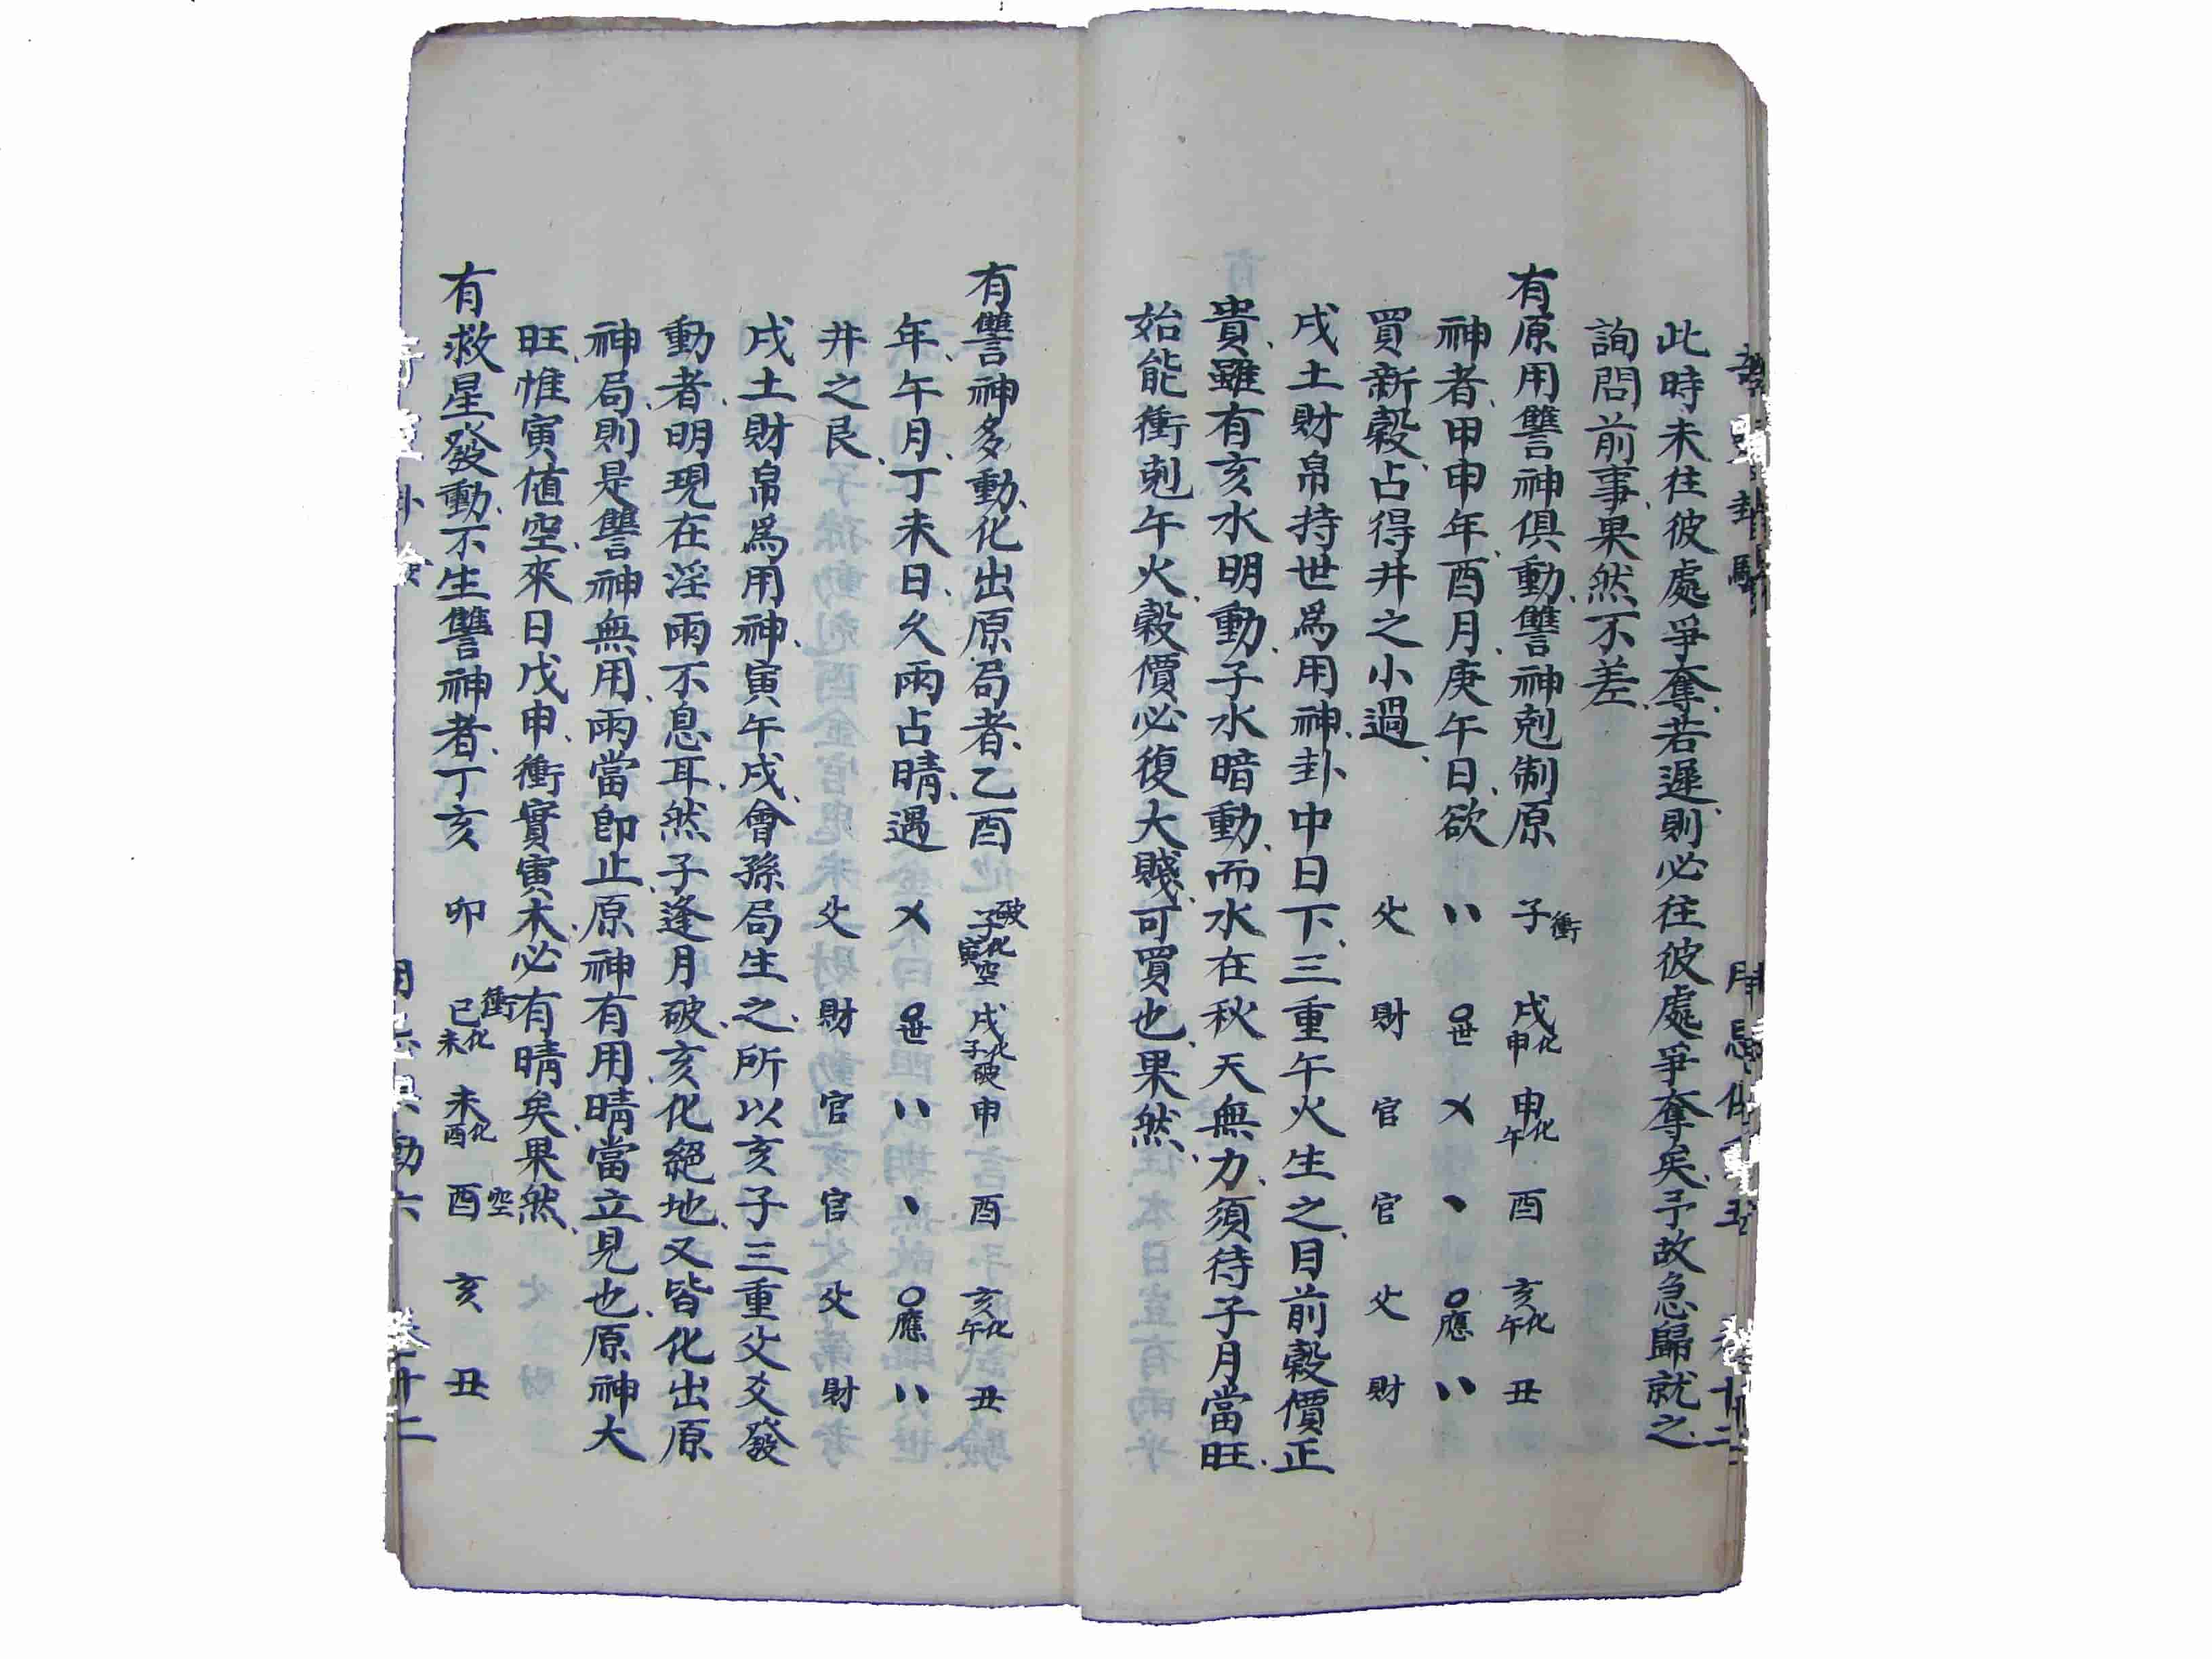 此時未往彼處爭奪若遲則必往彼處爭奪矣予故急歸就之
詢問前事果然不差
有原用讐神俱動讐神剋制原 子衝 戌化申 申化午 酉 亥化午 丑
神者甲申年酉月庚午日欲 〃 〇世 乂 、 〇應 〃
買新穀占得井之小過 父 財 官 官 父 財
戌土財帛持世爲用神卦中日下三重午火生之目前穀價正
貴雖有亥水明動子水暗動而水在秋天無力須待子月當旺
始能衝剋午火穀價必復大賤可買也果然
有讐神多動化出原局者乙酉 破子化寅空 戌化子破 申 酉 亥化午 丑
年午月丁未日久雨占晴遇 乂 〇世 〃 、 〇應 〃
井之艮 父 財 官 官 父 財
戌土財帛爲用神寅午戌會孫局生之所以亥子三重父爻發
動者明現在淫雨不息耳然子逢月破亥化絕地又皆化出原
神局則是讐神無用雨當卽止原神有用晴當立見也原神大
旺惟寅值空來日戊申衝實寅木必有晴矣果然
有救星發動不生讐神者丁亥 卯 巳衝化未 未化酉 酉空 亥 丑